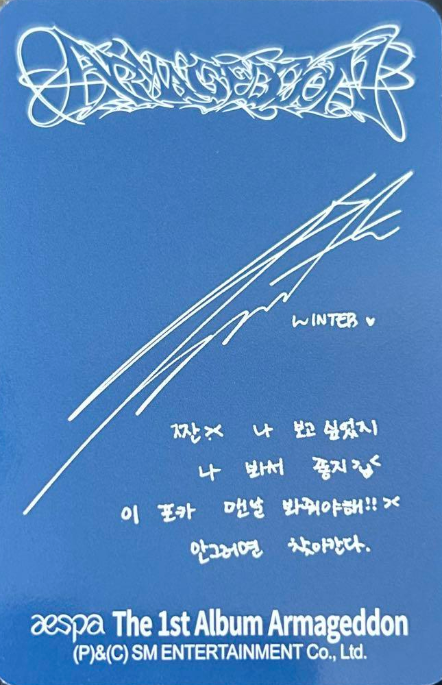 ARMAGEDDON
WINTER ♥
짠>< 나 보고 싶었지
나 봐서 좋지
이 포카 맨날 봐줘야해!! ><
안그러면 찾아간다.
aespa The 1st Album Armageddon
(P)&(C) SM ENTERTAINMENT Co., Ltd.